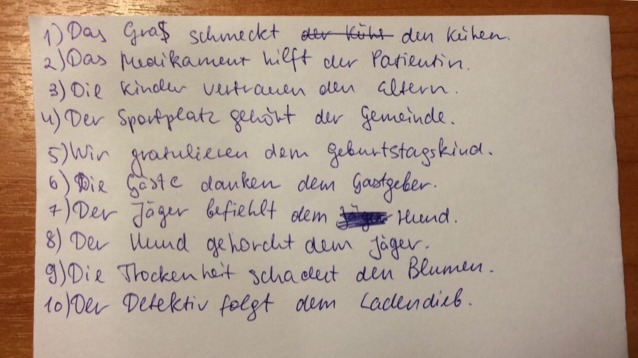 1) Das Gras schmeckt der Kühe den Kühen.
2) Das Medikament hilft der Patientin.
3) Die Kinder vertrauen den altern.
4) Der Sportplatz gehört der Gemeinde.
5) Wir gratulieren dem Geburtstagskind.
6) Die Gäste danken dem Gastgeber.
7) Der Jäger befiehlt dem Hund.
8) Der Hund gehorcht dem Jäger.
9) Die Trockenheit schadet den Blumen.
10) Der Detektiv folgt dem Ladendieb.